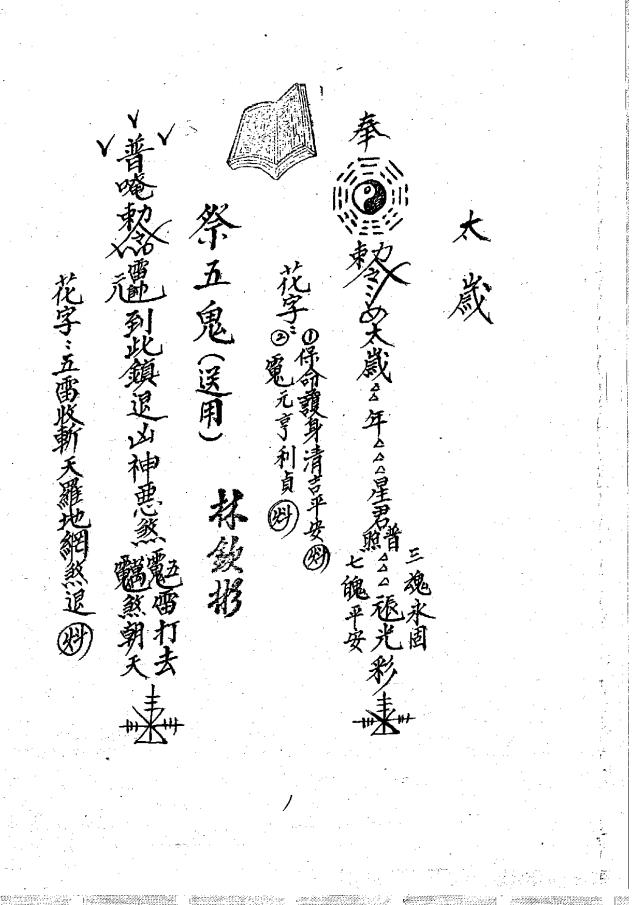 太歲
奉
勅令
太歲△△年△△△星君
普照
△△△
光彩
三魂永固
七魄平安
花字：
①保命護身清吉平安
②元亨利貞
祭五鬼(送用)
林欽彬
普唵勅令
雷帥
元
到此鎮退凶神惡煞
五雷打去
煞朝天
花字：五雷收斬天羅地網煞退